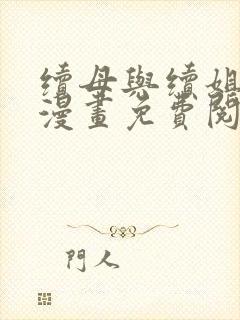 續母與續姐
漫畫免費閱
門人